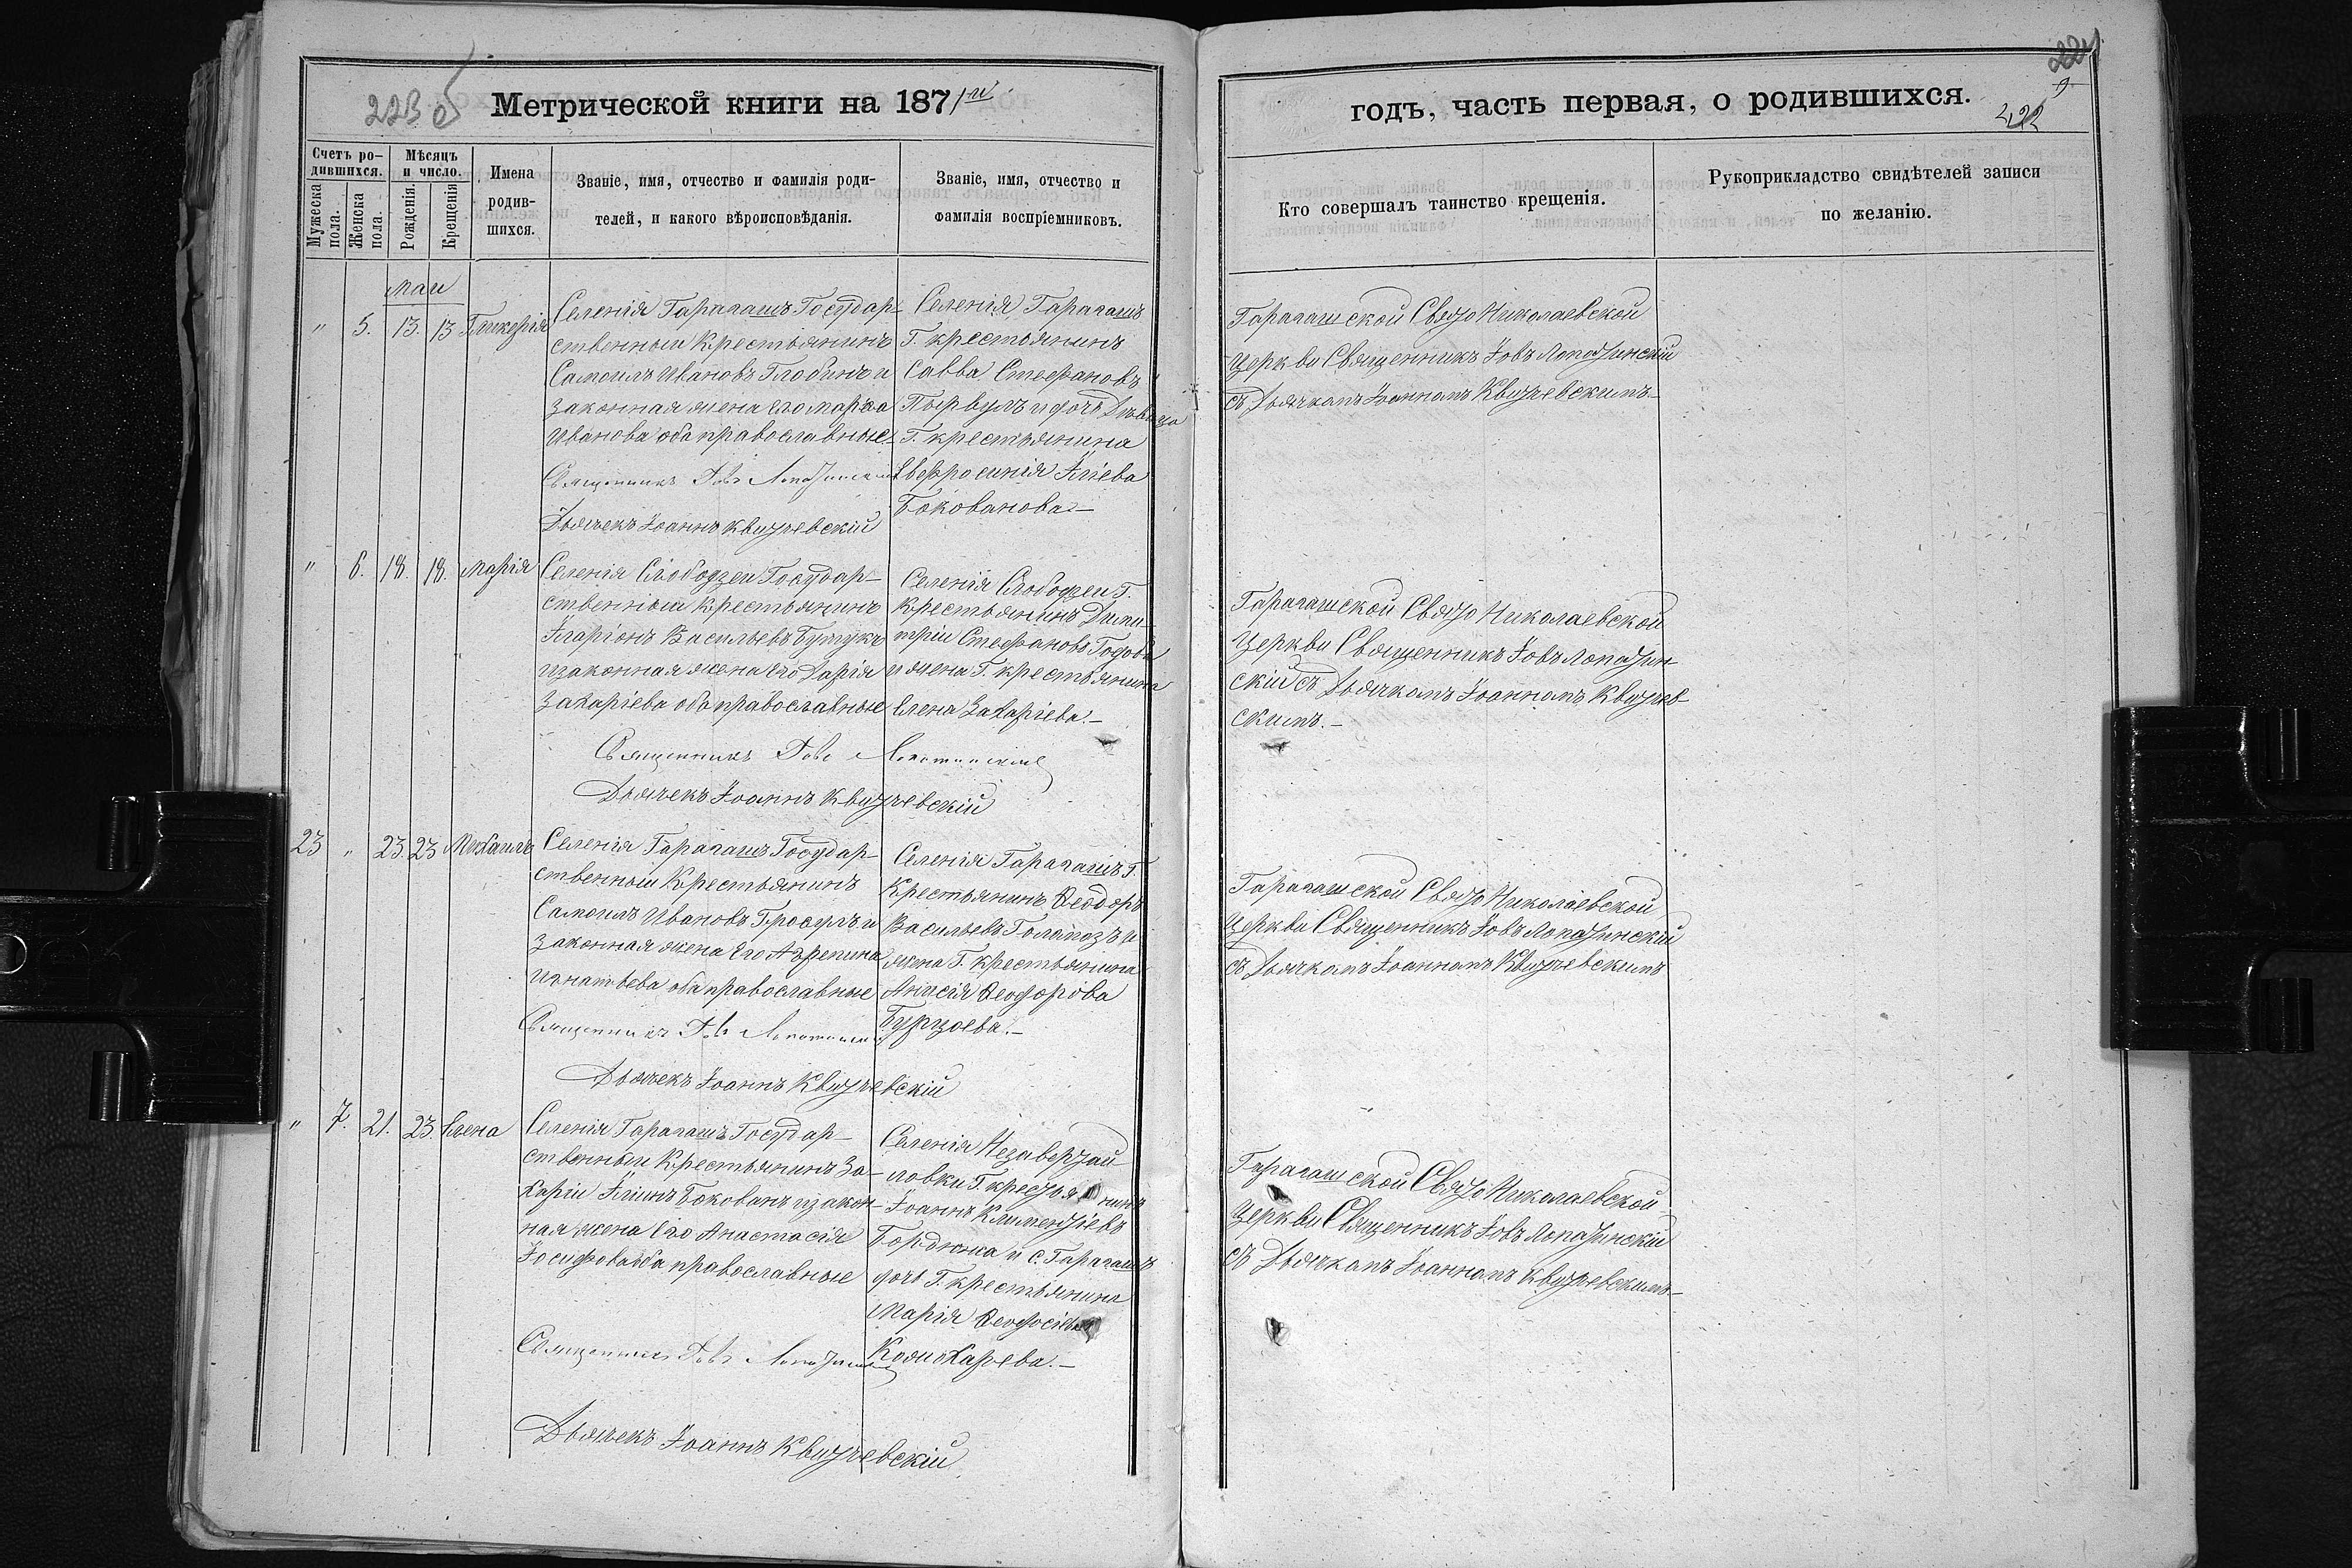 223 об
Метрической книги на 1871й
Счетъ ро-
дившихся.
Мужеска
пола.
Женска
пола.
Мѣсяцъ
и число.
Рожденія.
Крещенія
Имена
родив-
шихся.
Званіе, имя, отчество и фамилія роди-
телей, и какого вѣроисповѣданія.
Званіе, имя, отчество и
фамилія воспріемниковъ.
Маи
" 5. 13. 13 Гликерія
Селенія Гарагашъ Государ-
ственный Крестьянинъ
Самоилъ Ивановъ Глобинъ и
законная жена его Марѳа
Иванова оба православные
Священникъ Іовъ Лопатинскій
Дьячекъ Іоаннъ Квитчевскій
Селенія Гарагашъ
Г. крестьянинъ
Савва Стефановъ
Пырвулъ и дочь Дѣвица
Г. крестьянина
Евфросинія Іліева
Бокованова.-
" 6. 18. 18. Марія
Селенія Слободзеи Государ-
ственный крестьянинъ
Иларіонъ Васильевъ Бутукъ
и законная жена его Дарія
Захаріева оба православные
Священникъ Іовъ Лопатинскій
Дьячекъ Іоаннъ Квитчевскій
Селенія Слободзеи Г.
Крестьянинъ Дими-
трій Стефановъ
и жена Г. крестьянина
Елена Захаріева.-
23 " 23. 23 Михаилъ
Селенія Гарагашъ Государ-
ственный Крестьянинъ
Самоилъ Ивановъ Гросулъ и
законная жена его Агрепина
Игнатьева оба православные
Священникъ Іовъ Лопатинскій
Дьячекъ Іоаннъ Квитчевскій
Селенія Гарагашъ Г.
Крестьянинъ Ѳеодоръ
Васильевъ Голапозъ и
жена Г. крестьянина
Анисія Ѳеодорова
Бурцоева.-
" 7. 21. 23. Елена
Селенія Гарагашъ Государ-
ственный Крестьянинъ За-
харій Іліинъ Бокованъ и закон-
ная жена его Анастасія
Іосифова оба православные
Священникъ Іовъ Лопатинскій
Дьячекъ Іоаннъ Квитчевскій
Селенія Незавертай-
ловки Г. крестьянинъ
Іоаннъ Климентіевъ
Бордюжа и с. Гарагашъ
дочь Г. крестьянина
Марія Ѳеодосіева
Кожохарева.-
224
9
222
годъ, часть первая, о родившихся.
Кто совершалъ таинство крещенія.
Рукоприкладство свидѣтелей записи
по желанію.
Гарагашской Свято Николаевской
Церкви Священникъ Іовъ Лопатинскій
съ Дьячкомъ Іоанномъ Квитчевскимъ-
Гарагашской Свято Николаевской
Церкви Священникъ Іовъ Лопатин-
скій съ Дьячкомъ Іоанномъ Квитчев-
скимъ.-
Гарагашской Свято Николаевской
Церкви Священникъ Іовъ Лопатинскій
съ Дьячкомъ Іоанномъ Квитчевскимъ
Гарагашской Свято Николаевской
Церкви Священникъ Іовъ Лопатинскій
съ Дьячкомъ Іоанномъ Квитчевскимъ-